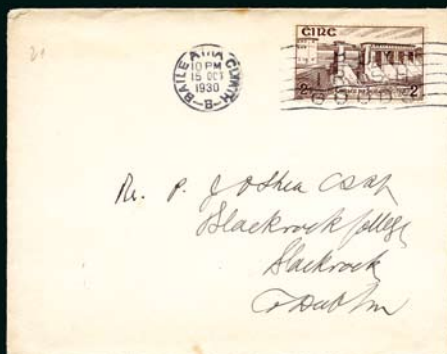 21
BAILE ÁTHA CLIATH
10 PM
15 OCT
1930
B
ÉIRE
2 2
GOODS
Rev. P. J. O'Shea CSSp
Blackrock College
Blackrock
Co Dublin